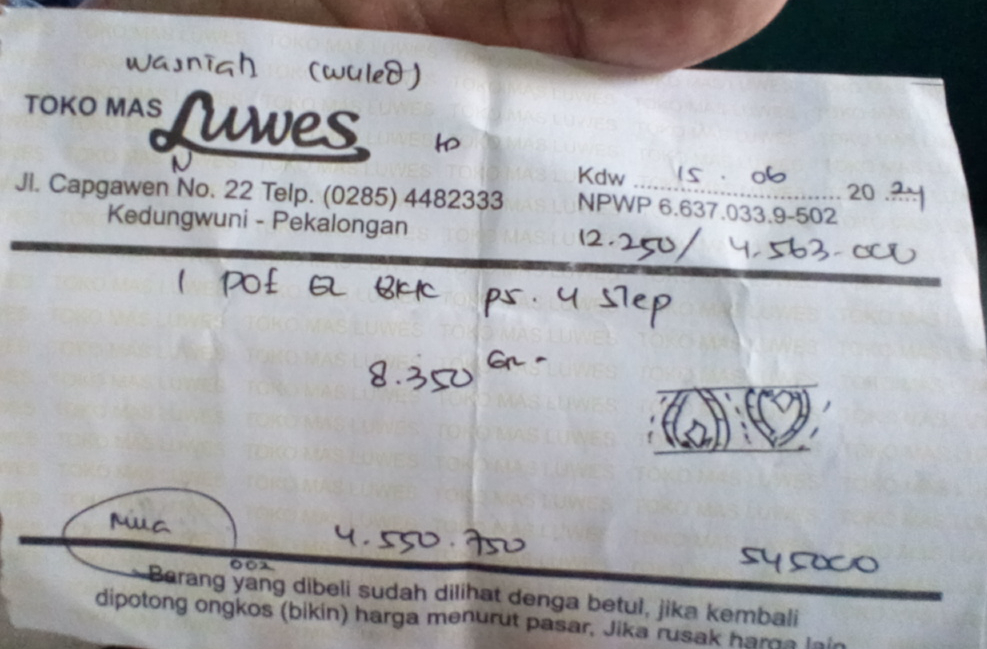 wasniah (wuled)
TOKO MAS Luwes
to
N
Jl. Capgawen No. 22 Telp. (0285) 4482333
Kedungwuni - Pekalongan
Kdw 15.06 20 24
NPWP 6.637.033.9-502
12.250/ 4.563.000
1 pof ps. 4 step
8.350 Gr.
Mua
4.550.750
545000
002
Barang yang dibeli sudah dilihat denga betul, jika kembali
dipotong ongkos (bikin) harga menurut pasar, Jika rusak harga lain